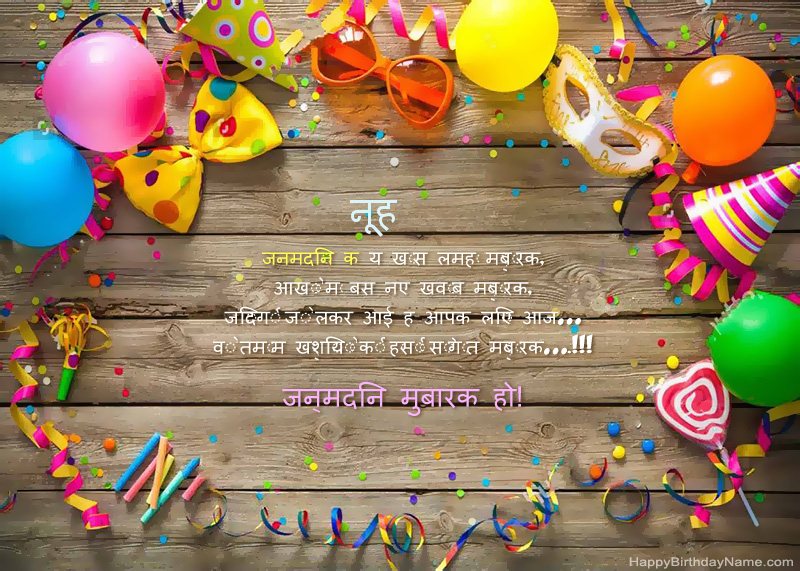 नूह
जनमदनि क य खास लमह मबारक,
आखों म बस नए खवाब मबारक,
जदिगी जो लेकर आई ह आपक लिए आज...
वो तमाम खशयिों की हसी सौगात मबारक...!!!
जन्मदनि मुबारक हो!
HappyBirthdayName.com